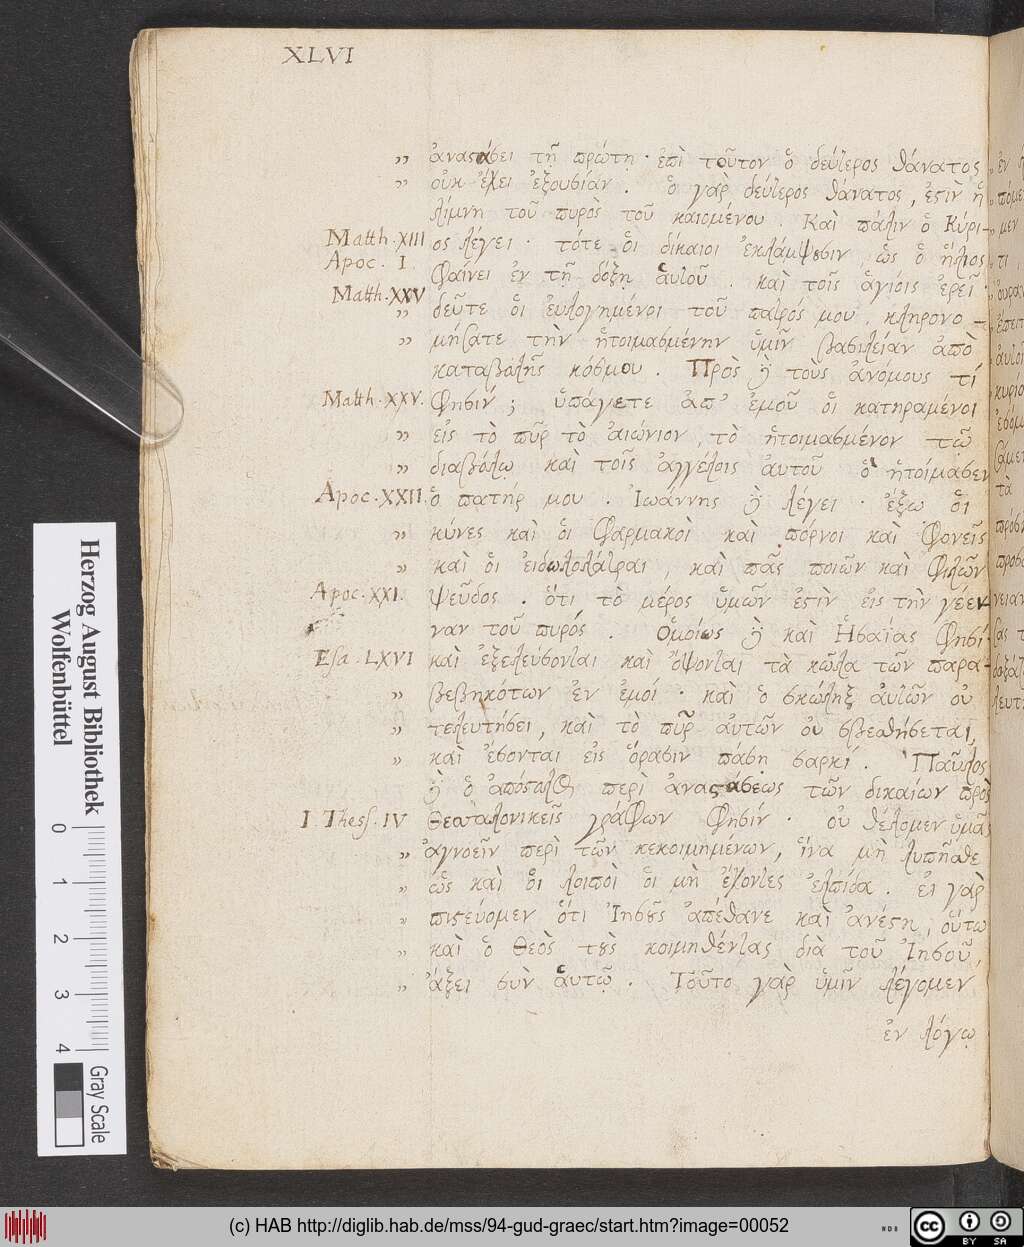 XLVI
„ ἀναστάσει τῇ πρώτῃ · ἐπὶ τοῦτον ὁ δεύτερος θάνατος
„ οὐκ ἔχει ἐξουσίαν . ὁ γὰρ δεύτερος θάνατος, ἐστὶν ἡ
λίμνη τοῦ πυρὸς τοῦ καιομένου . Καὶ πάλιν ὁ Κύρι-
Matth. XIII ος λέγει · τότε οἱ δίκαιοι ἐκλάμψουσιν, ὡς ὁ ἥλιος
Apoc. I. Φαίνει ἐν τῇ δόξῃ αὐτοῦ . καὶ τοῖς ἁγίοις ἐρεῖ ·
Matth. XXV
„ δεῦτε οἱ εὐλογημένοι τοῦ πατρός μου, κληρονο-
„ μήσατε τὴν ἡτοιμασμένην ὑμῖν βασιλείαν ἀπὸ
καταβολῆς κόσμου . Πρὸς δὲ τοὺς ἀνόμους τί
Matth. XXV. Φησίν ; ὑπάγετε ἀπ' ἐμοῦ οἱ κατηραμένοι
„ εἰς τὸ πῦρ τὸ αἰώνιον, τὸ ἡτοιμασμένον τῷ
„ διαβόλῳ καὶ τοῖς ἀγγέλοις αὐτοῦ ὃ ἡτοίμασεν
Apoc. XXII. ὁ πατήρ μου . Ἰωάννης δὲ λέγει · ἔξω οἱ
„ κύνες καὶ οἱ Φαρμακοὶ καὶ πόρνοι καὶ Φονεῖς
„ καὶ οἱ εἰδωλολάτραι, καὶ πᾶς ποιῶν καὶ Φιλῶν
Apoc. XXI. ψεῦδος . ὅτι τὸ μέρος ὑμῶν ἐστὶν εἰς τὴν γέεν-
ναν τοῦ πυρός . Ὁμοίως δὲ καὶ Ἡσαίας Φησί·
Esa. LXVI καὶ ἐξελεύσονται καὶ ὄψονται τὰ κῶλα τῶν παρα-
„ βεβηκότων ἐν ἐμοί · καὶ ὁ σκώληξ αὐτῶν οὐ
„ τελευτήσει, καὶ τὸ πῦρ αὐτῶν οὐ σβεσθήσεται,
„ καὶ ἔσονται εἰς ὅρασιν πάσῃ σαρκί . Παῦλος
δὲ ὁ ἀπόστολος περὶ ἀναστάσεως τῶν δικαίων πρὸς
I. Thess. IV Θεσσαλονικεῖς γράφων Φησίν · οὐ θέλομεν ὑμᾶς
„ ἀγνοεῖν περὶ τῶν κεκοιμημένων, ἵνα μὴ λυπῆσθε
„ ὡς καὶ οἱ λοιποὶ οἱ μὴ ἔχοντες ἐλπίδα . εἰ γὰρ
„ πιστεύομεν ὅτι Ἰησοῦς ἀπέθανε καὶ ἀνέστη, οὕτω
„ καὶ ὁ Θεὸς τοὺς κοιμηθέντας διὰ τοῦ Ἰησοῦ,
„ ἄξει σὺν αὐτῷ . Τοῦτο γὰρ ὑμῖν λέγομεν
ἐν λόγῳ
Herzog August Bibliothek
Wolfenbüttel
0 1 2 3 4
Gray Scale
(c) HAB http://diglib.hab.de/mss/94-gud-graec/start.htm?image=00052
WDB
cc BY SA